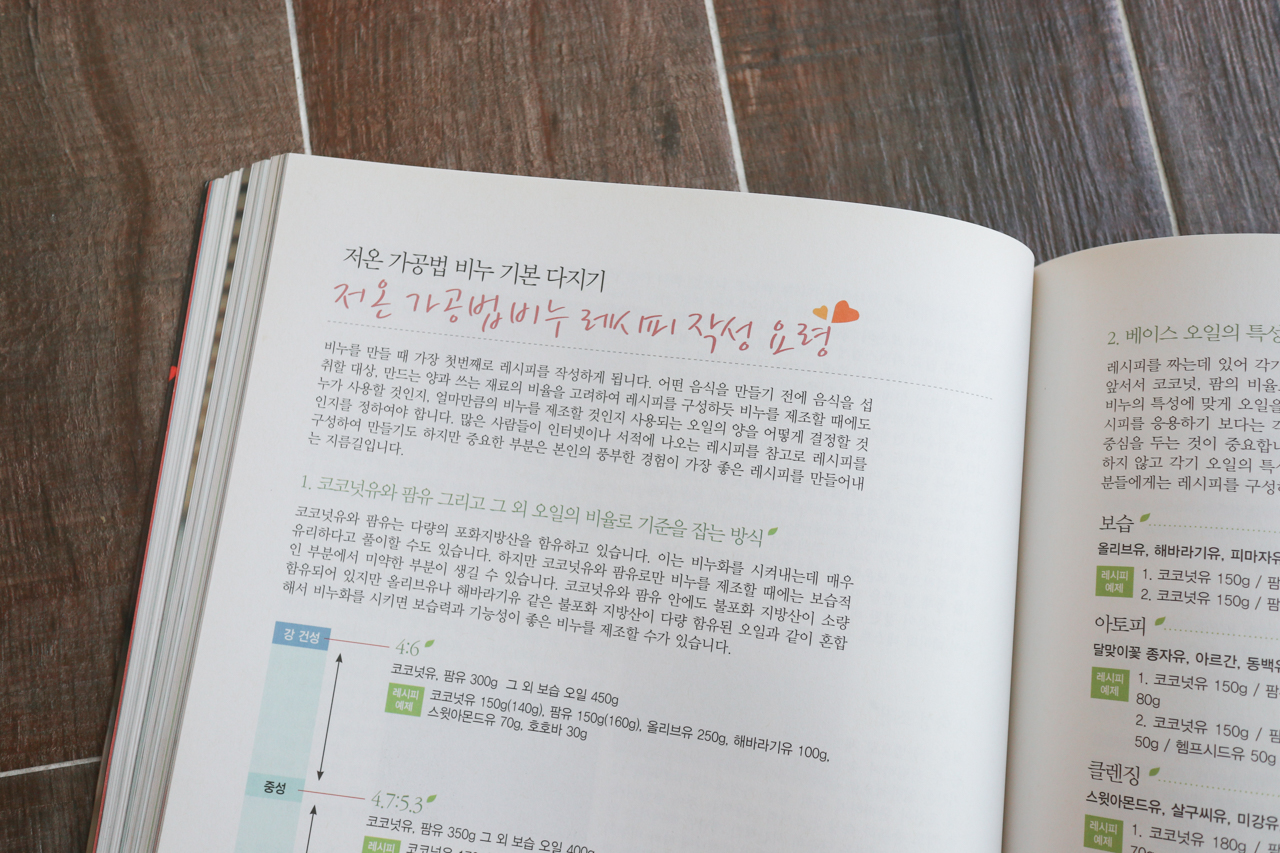 저온 가공법 비누 기본 다지기
저온 가공법 비누 레시피 작성 요령
비누를 만들 때 가장 첫번째로 레시피를 작성하게 됩니다. 어떤 음식을 만들기 전에 음식을 섭
취할 대상, 만드는 양과 쓰는 재료의 비율을 고려하여 레시피를 구성하듯 비누를 제조할 때에도
누가 사용할 것인지, 얼마만큼의 비누를 제조할 것인지 사용되는 오일의 양을 어떻게 결정할 것
인지를 정하여야 합니다. 많은 사람들이 인터넷이나 서적에 나오는 레시피를 참고로 레시피를
구성하여 만들기도 하지만 중요한 부분은 본인의 풍부한 경험이 가장 좋은 레시피를 만들어내
는 지름길입니다.
1. 코코넛유와 팜유 그리고 그 외 오일의 비율로 기준을 잡는 방식
코코넛유와 팜유는 다량의 포화지방산을 함유하고 있습니다. 이는 비누화를 시켜내는데 매우
유리하다고 풀이할 수도 있습니다. 하지만 코코넛유와 팜유로만 비누를 제조할 때에는 보습적
인 부분에서 미약한 부분이 생길 수 있습니다. 코코넛유와 팜유 안에도 불포화 지방산이 소량
함유되어 있지만 올리브유나 해바라기유 같은 불포화 지방산이 다량 함유된 오일과 같이 혼합
해서 비누화를 시키면 보습력과 기능성이 좋은 비누를 제조할 수가 있습니다.
강 건성
4:6
코코넛유, 팜유 300g 그 외 보습 오일 450g
레시피
예제
코코넛유 150g(140g), 팜유 150g(160g), 올리브유 250g, 해바라기유 100g,
스윗아몬드유 70g, 호호바 30g
중성
4.7:5.3
코코넛유, 팜유 350g 그 외 보습 오일 400g
레시피
코코넛유
2. 베이스 오일의 특성
레시피를 짜는데 있어 각기
앞서서 코코넛, 팜의 비율
비누의 특성에 맞게 오일을
시피를 응용하기 보다는 각
중심을 두는 것이 중요합니
하지 않고 각기 오일의 특
분들에게는 레시피를 구성
보습
올리브유, 해바라기유, 피마자유
레시피
예제
1. 코코넛유 150g / 팜
2. 코코넛유 150g / 팜
아토피
달맞이꽃 종자유, 아르간, 동백
레시피
예제
1. 코코넛유 150g / 팜
80g
2. 코코넛유 150g / 팜
50g / 헴프시드유 50g
클렌징
스윗아몬드유, 살구씨유, 미강유
레시피
예제
1. 코코넛유 180g / 팜